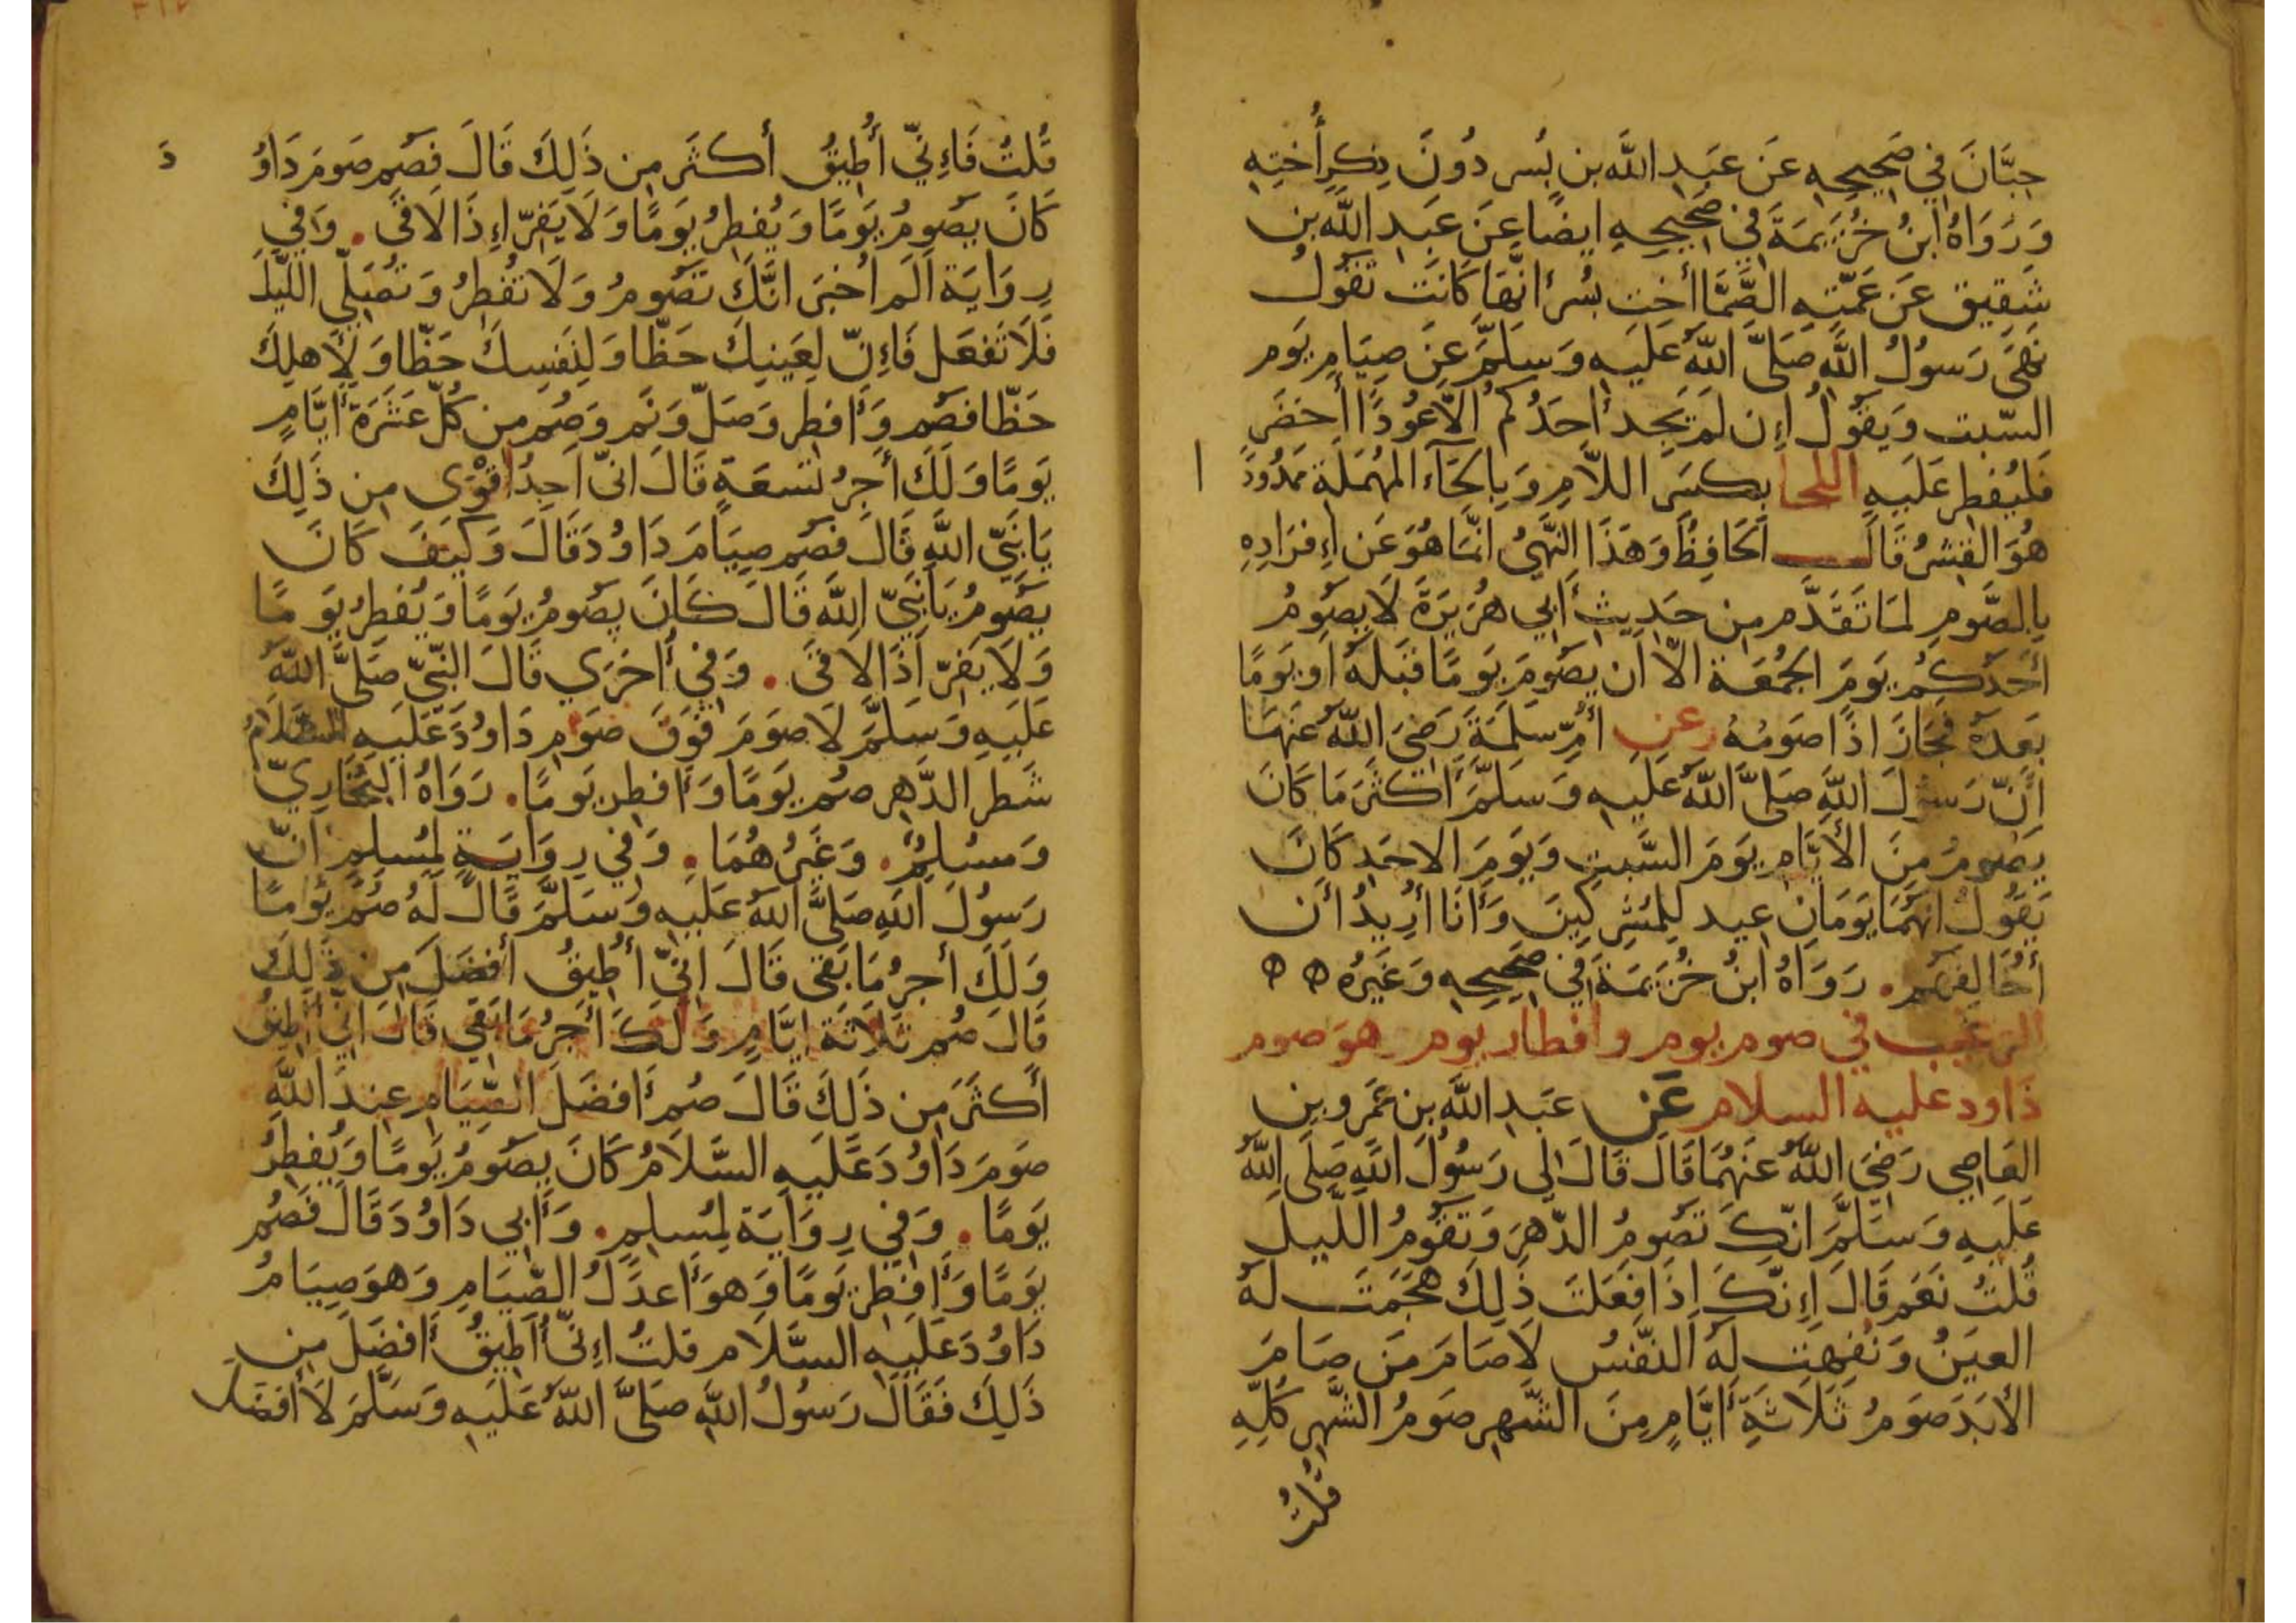 حِبَّانَ في صَحِيحِهِ عَن عَبدِ اللَّه بن بُسر دُونَ ذِكرِ أُختِهِ
وَرَوَاهُ ابنُ خُزَيمَةَ في صَحِيحِهِ ايضًا عَن عَبدِ اللَّه بن
شَقِيق عَن عَمَّتِهِ الصَّمَّا أخت بُسر انَّهَا كَانَت تَقُولُ
نَهَى رَسُولُ اللَّه صَلَّى اللَّهُ عَلَيهِ وَسَلَّمَ عَن صِيَامِ يَوم
السَّبت وَيَقُولُ إِن لَم يَجِد أحَدُكُم الَّا عُودًا أخضَر
فَليُفطِر عَلَيهِ اللحا بِكَسرِ اللَّامِ وَبِالحَاء المُهمَلَة مَمدُودً ا
هُوَ القِشرُ قَالَ الحَافِظُ وَهَذَا النَّهيُ انَّمَا هُوَ عَن إِفرَادِهِ
بِالصَّومِ لمَا تَقَدَّم مِن حَدِيثِ أبي هُرَيرَةَ لَا يَصُومُ
أحَدُكُم يَومَ الجُمُعَة الَّا ان يَصُومَ يَومًا قَبلَهُ او يَومًا
بَعدَهُ فجَازَ اذًا صَومُهُ وعن أُمِّ سَلَمَةَ رَضيَ اللَّهُ عَنهَا
أنَّ رَسُولَ اللَّهِ صَلَّى اللَّهُ عَلَيهِ وَسَلَّمَ أكثَرَ مَا كَانَ
يَصُومُ مِنَ الأَيَّامِ يَومَ السَّبتِ وَيَومَ الاحَدِ كَانَ
يَقُولُ انَّهُمَا يَومَانِ عِيد لِلمُشرِكِينَ وَأنَا أُرِيدُ أن
أُخَالِفَهُم . رَوَاهُ ابنُ خُزَيمَةَ في صَحِيحِهِ وَغَيرُه ه ه
الترغيب في صوم يوم وافطار يوم هو صوم
داود عليه السلام عَن عَبدِ اللَّهَ بن عَمرو بن
العَاصِي رَضيَ اللَّهُ عَنهُمَا قَالَ قَالَ لِي رَسُولُ اللَّهِ صَلَّى اللَّهُ
عَلَيهِ وَسَلَّمَ انَّكَ تَصُومُ الدَّهرَ وَتَقُومُ اللَّيلَ
قُلتُ نَعَم قَالَ إِنَّكَ إِذَا فَعَلتَ ذَلِكَ هَجَمَت لَهُ
العَينُ وَنَفِهَت لَهُ النَّفسُ لَا صَامَ مَن صَامَ
الأَبَدَ صَومُ ثَلَاثَةِ أيَّامٍ مِنَ الشَّهرِ صَومُ الشَّهرِ كُلِّهِ
قُلتُ
قُلتُ فَاِنِّي أُطِيقُ أكثَر مِن ذَلِكَ قَالَ فَصُم صَومَ دَاوُ دَ
كَانَ يَصُومُ يَومًا وَيُفطِرُ يَومًا وَلَا يَفِرّ إِذَا لَاقَى . وَفي
رِوَايَة ألَم أُخبَر انَّكَ تَصُومُ وَلَا تُفطِرُ وَتُصَلِّي اللَّيلَ
فَلَا تَفعَل فَإِنّ لِعَينِكَ حَظًّا وَلِنَفسِكَ حَظًّا وَلِأَهلِكَ
حَظًّا فَصُم وَأفطِر وَصَلّ وَنَم وَصُم مِن كُلّ عَشَرَة أيَّامٍ
يَومًا وَلَكَ أجرُ تسعَةٍ قَالَ انّي أجِدُ اقوَى مِن ذَلِكَ
يَا نَبيَّ اللَّهِ قَالَ فَصُم صِيَامَ دَاوُدَ قَالَ وَكَيفَ كَانَ
يَصُومُ يَا نَبيّ اللَّه قَالَ كَانَ يَصُومُ يَومًا وَيُفطِرُ يَومًا
وَلَا يَفِرّ اذَا لاقَى . وَفي أُخرَى قَالَ النَّبيّ صَلَّى اللَّهُ
عَلَيهِ وَسَلَّمَ لَا صَومَ فَوقَ صَومِ دَاوُدَ عَلَيهِ السَّلَامُ
شَطر الدَّهرِ صُم يَومًا وَأفطِر يَومًا . رَوَاهُ البُخَارِيّ
وَمسلِمٌ . وَغَيرُهُمَا . وَفي رِوَايَةٍ لمُسلِمٍ انّ
رَسُولَ اللَّهِ صَلَّى اللَّهُ عَلَيهِ وَسَلَّمَ قَالَ لَهُ صُم يَومًا
وَلَكَ أجرُ مَا بَقي قَالَ انّي أُطِيقُ أفضَلَ مِن ذَلِكَ
قَالَ صُم ثَلَاثَة ايَّامٍ وَلَكَ أجرُ مَا بَقي قَالَ اني اطيقُ
أكثَرَ مِن ذَلِكَ قَالَ صُم أفضَلَ الصِّيَامِ عِندَ اللَّهِ
صَومَ دَاوُدَ عَلَيهِ السَّلَامُ كَانَ يَصُومُ يَومًا وَيُفطِرُ
يَومًا . وَفي رِوَايَة لمُسلِمٍ . وَأبي دَاوُدَ قَالَ فَصُم
يَومًا وَأفطِر يَومًا وَهوَ أعدَلُ الصِّيَامِ وَهوَ صِيَامُ
دَاوُدَ عَلَيهِ السَّلَام قلتُ إِنّي أطِيقُ أفضَلَ مِن
ذَلِكَ فَقَالَ رَسُولُ اللَّهِ صَلَّى اللَّهُ عَلَيهِ وَسَلَّمَ لَا أفضَلَ